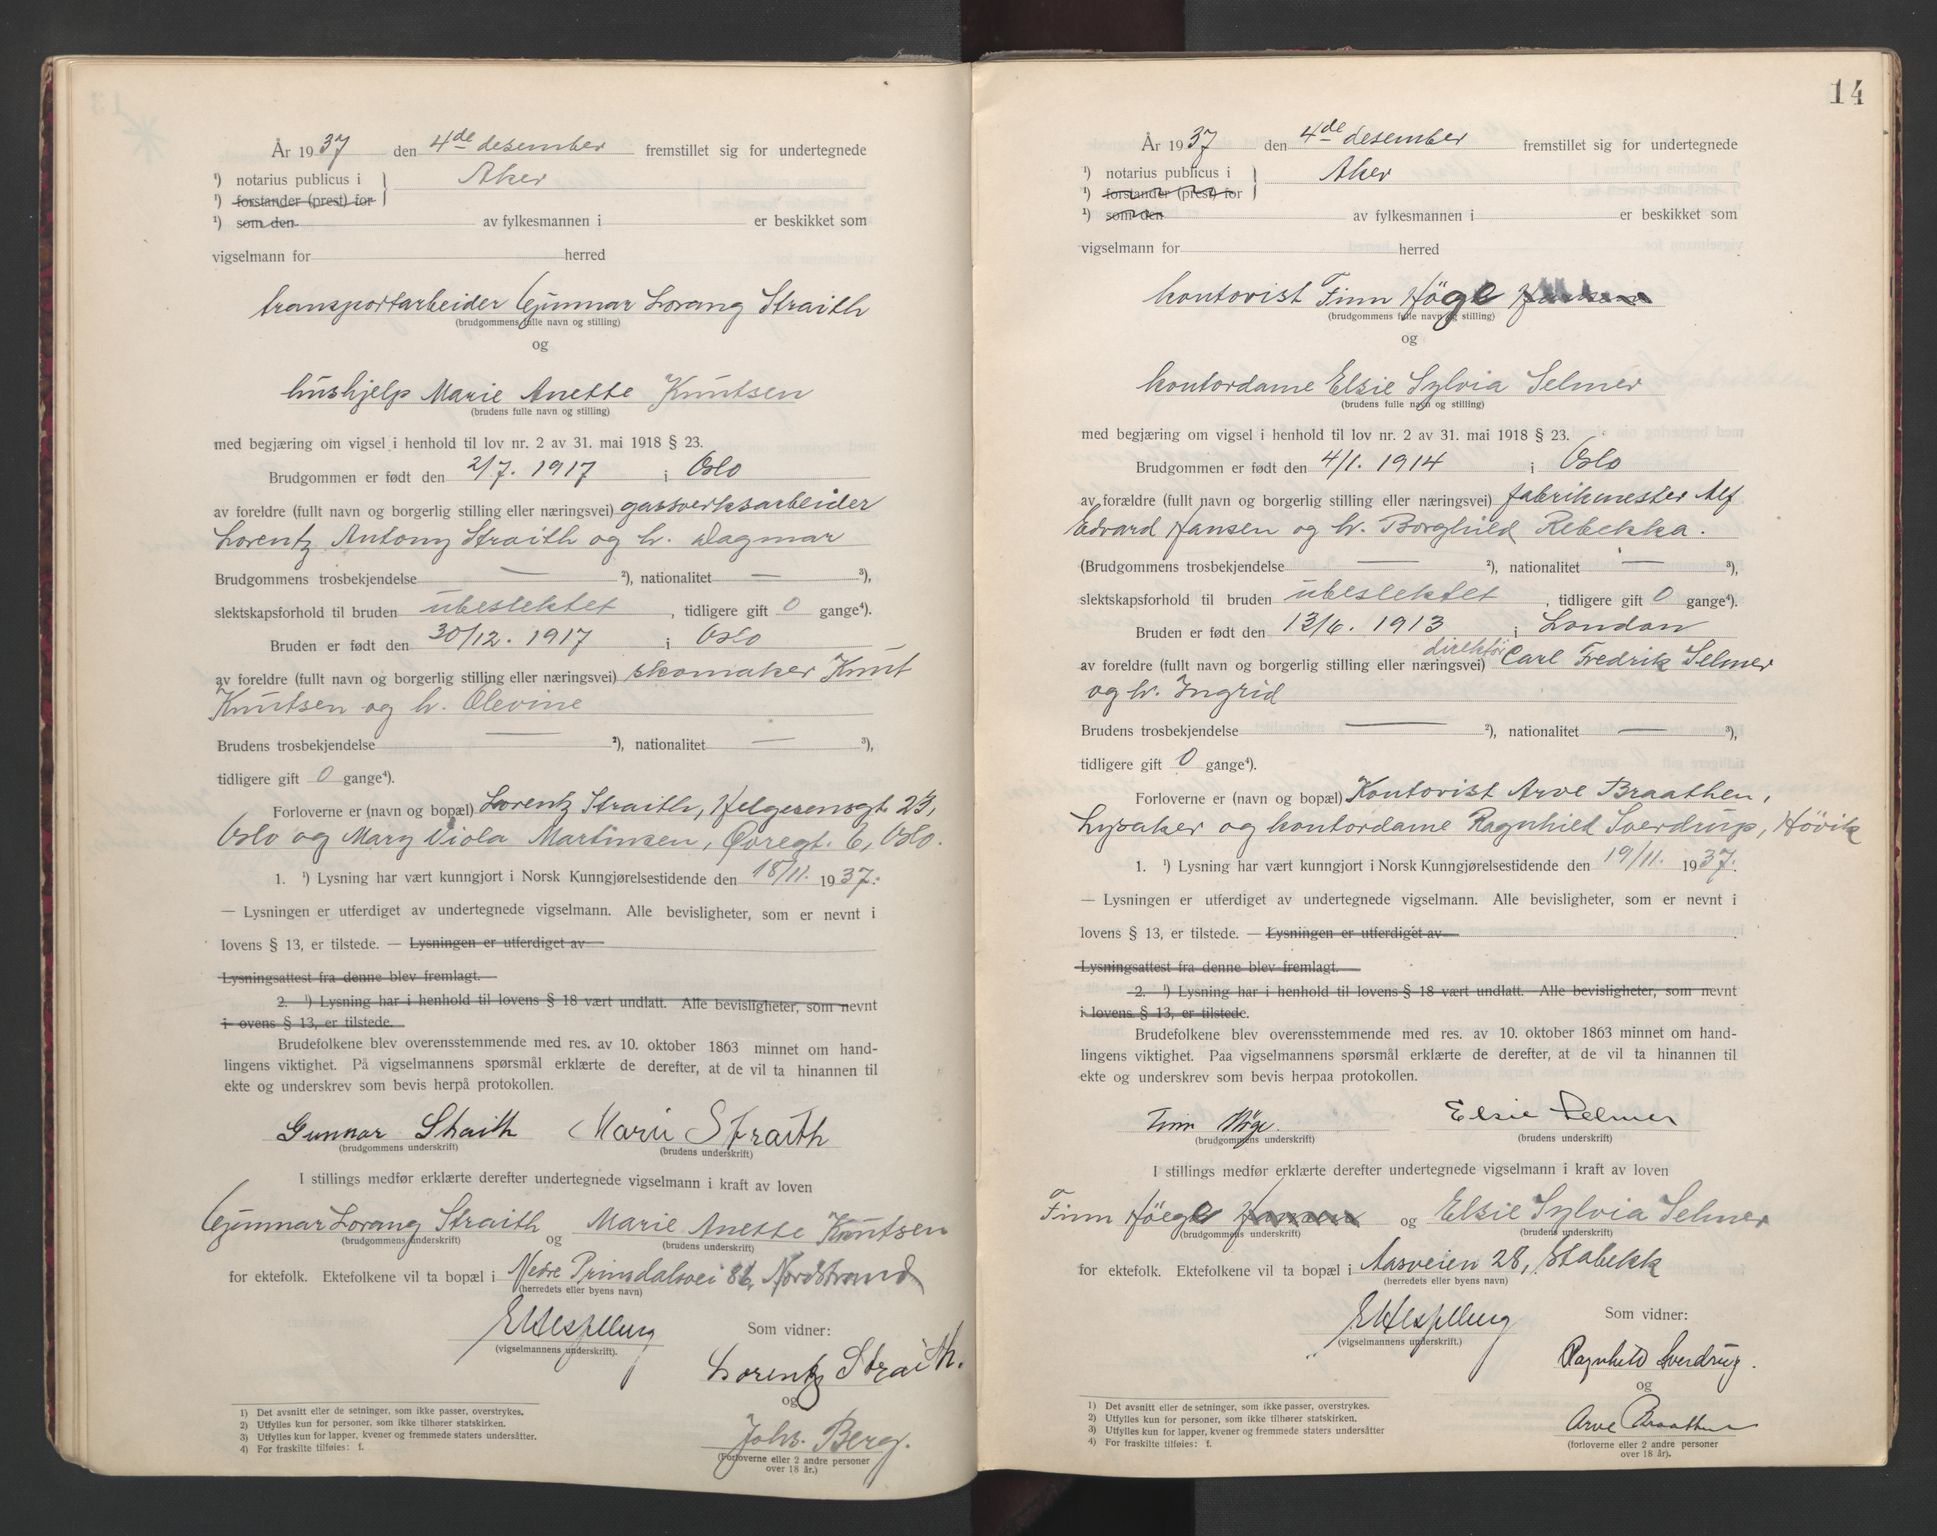 År 1937 den 4de desember fremstillet sig for undertegnede
¹) notarius publicus i } Aker
¹) forstander (prest) for
¹) som den av fylkesmannen i er beskikket som
vigselmann for herred
transportarbeider Gunnar Lorang Straith
(brudgommens fulle navn og stilling)
og
hushjelp Marie Anette Knutsen
(brudens fulle navn og stilling)
med begjæring om vigsel i henhold til lov nr. 2 av 31. mai 1918 § 23.
Brudgommen er født den 2/7. 1917 i Oslo
av foreldre (fullt navn og borgerlig stilling eller næringsvei) gassverksarbeider
Lorentz Antony Straith og h. Dagmar
Brudgommens trosbekjendelse — ²), nationalitet — ³),
slektskapsforhold til bruden ubeslektet, tidligere gift 0 gange⁴).
Bruden er født den 30/12. 1917 i Oslo
av foreldre (fullt navn og borgerlig stilling eller næringsvei) skomaker Knut
Knutsen og h. Olevine
Brudens trosbekjendelse — ²), nationalitet — ³),
tidligere gift 0 gange⁴).
Forloverne er (navn og bopæl) Lorentz Straith, Helgesensgt. 23,
Oslo og Mary Viola Martinsen, Øvregt. 6, Oslo.
1. ¹) Lysning har vært kunngjort i Norsk Kunngjørelsestidende den 18/11. 1937.
— Lysningen er utferdiget av undertegnede vigselmann. Alle bevisligheter, som er nevnt i
lovens § 13, er tilstede. — Lysningen er utferdiget av
Lysningsattest fra denne blev fremlagt.
2. ¹) Lysning har i henhold til lovens § 18 vært undlatt. Alle bevisligheter, som nevnt
i ovens § 13, er tilstede.
Brudefolkene blev overensstemmende med res. av 10. oktober 1863 minnet om hand-
lingens viktighet. På vigselmannens spørsmål erklærte de derefter, at de vil ta hinannen til
ekte og underskrev som bevis herpå protokollen.
Gunnar Straith Marie Straith
(brudgommens underskrift) (brudens underskrift)
I stillings medfør erklærte derefter undertegnede vigselmann i kraft av loven
Gunnar Lorang Straith og Marie Anette Knutsen
(brudgommens underskrift) (brudens underskrift)
for ektefolk. Ektefolkene vil ta bopæl i Nedre Prinsdalsvei 86, Nordstrand
(herredets eller byens navn)
(vigselmannens underskrift).
Som vidner:
Lorentz Straith.
og
Johs. Berg.
(Forloverne eller 2 andre personer
over 18 år.)
1) Det avsnitt eller de setninger, som ikke passer, overstrykes.
2) Utfylles kun for personer, som ikke tilhører statskirken.
3) Utfylles kun for lapper, kvener og fremmede staters undersåtter.
4) For fraskilte tilføies: f.
14
År 1937 den 4de desember fremstillet sig for undertegnede
¹) notarius publicus i } Aker
¹) forstander (prest) for
¹) som den av fylkesmannen i er beskikket som
vigselmann for herred
kontorist Finn Høge Hansen
(brudgommens fulle navn og stilling)
og
kontordame Elsie Sylvia Selmer
(brudens fulle navn og stilling)
med begjæring om vigsel i henhold til lov nr. 2 av 31. mai 1918 § 23.
Brudgommen er født den 4/1. 1914 i Oslo
av forældre (fullt navn og borgerlig stilling eller næringsvei) fabrikmester Alf
Edvard Hansen og h. Borghild Rebekka.
(Brudgommens trosbekjendelse — ²), nationalitet — ³),
slektskapsforhold til bruden ubeslektet, tidligere gift 0 gange⁴).
Bruden er født den 13/6. 1913 i London
av foreldre (fullt navn og borgerlig stilling eller næringsvei) direktør Carl Fredrik Selmer
og h. Ingrid
Brudens trosbekjendelse — ²), nationalitet — ³),
tidligere gift 0 gange⁴).
Forloverne er (navn og bopæl) Kontorist Arve Braathen,
Lysaker og kontordame Ragnhild Sverdrup, Hövik
1. ¹) Lysning har vært kunngjort i Norsk Kunngjørelsestidende den 19/11. 1937.
— Lysningen er utferdiget av undertegnede vigselmann. Alle bevisligheter, som er nevnt i
lovens § 13, er tilstede. — Lysningen er utferdiget av
Lysningsattest fra denne blev fremlagt.
2. ¹) Lysning har i henhold til lovens § 18 vært undlatt. Alle bevisligheter, som nevnt
i lovens § 13, er tilstede.
Brudefolkene blev overensstemmende med res. av 10. oktober 1863 minnet om hand-
lingens viktighet. Paa vigselmannens spørsmål erklærte de derefter, at de vil ta hinannen til
ekte og underskrev som bevis herpaa protokollen.
Finn Høge. Elsie Selmer
(brudgommens underskrift) (brudens underskrift)
I stillings medfør erklærte derefter undertegnede vigselmann i kraft av loven
Finn Høege Hansen og Elsie Sylvia Selmer
(brudgommens underskrift) (brudens underskrift)
for ektefolk. Ektefolkene vil ta bopæl i Aasveien 28, Stabekk
(herredets eller byens navn)
(vigselmannens underskrift.)
Som vidner:
Ragnhild Sverdrup.
og
Arve Braathen
(forloverne eller 2 andre personer
over 18 år).
1) Det avsnitt eller de setninger, som ikke passer, overstrykes.
2) Utfylles kun for personer, som ikke tilhører statskirken.
3) Utfylles kun for lapper, kvener og fremmede staters undersåtter
4) For fraskilte tilføies: f.